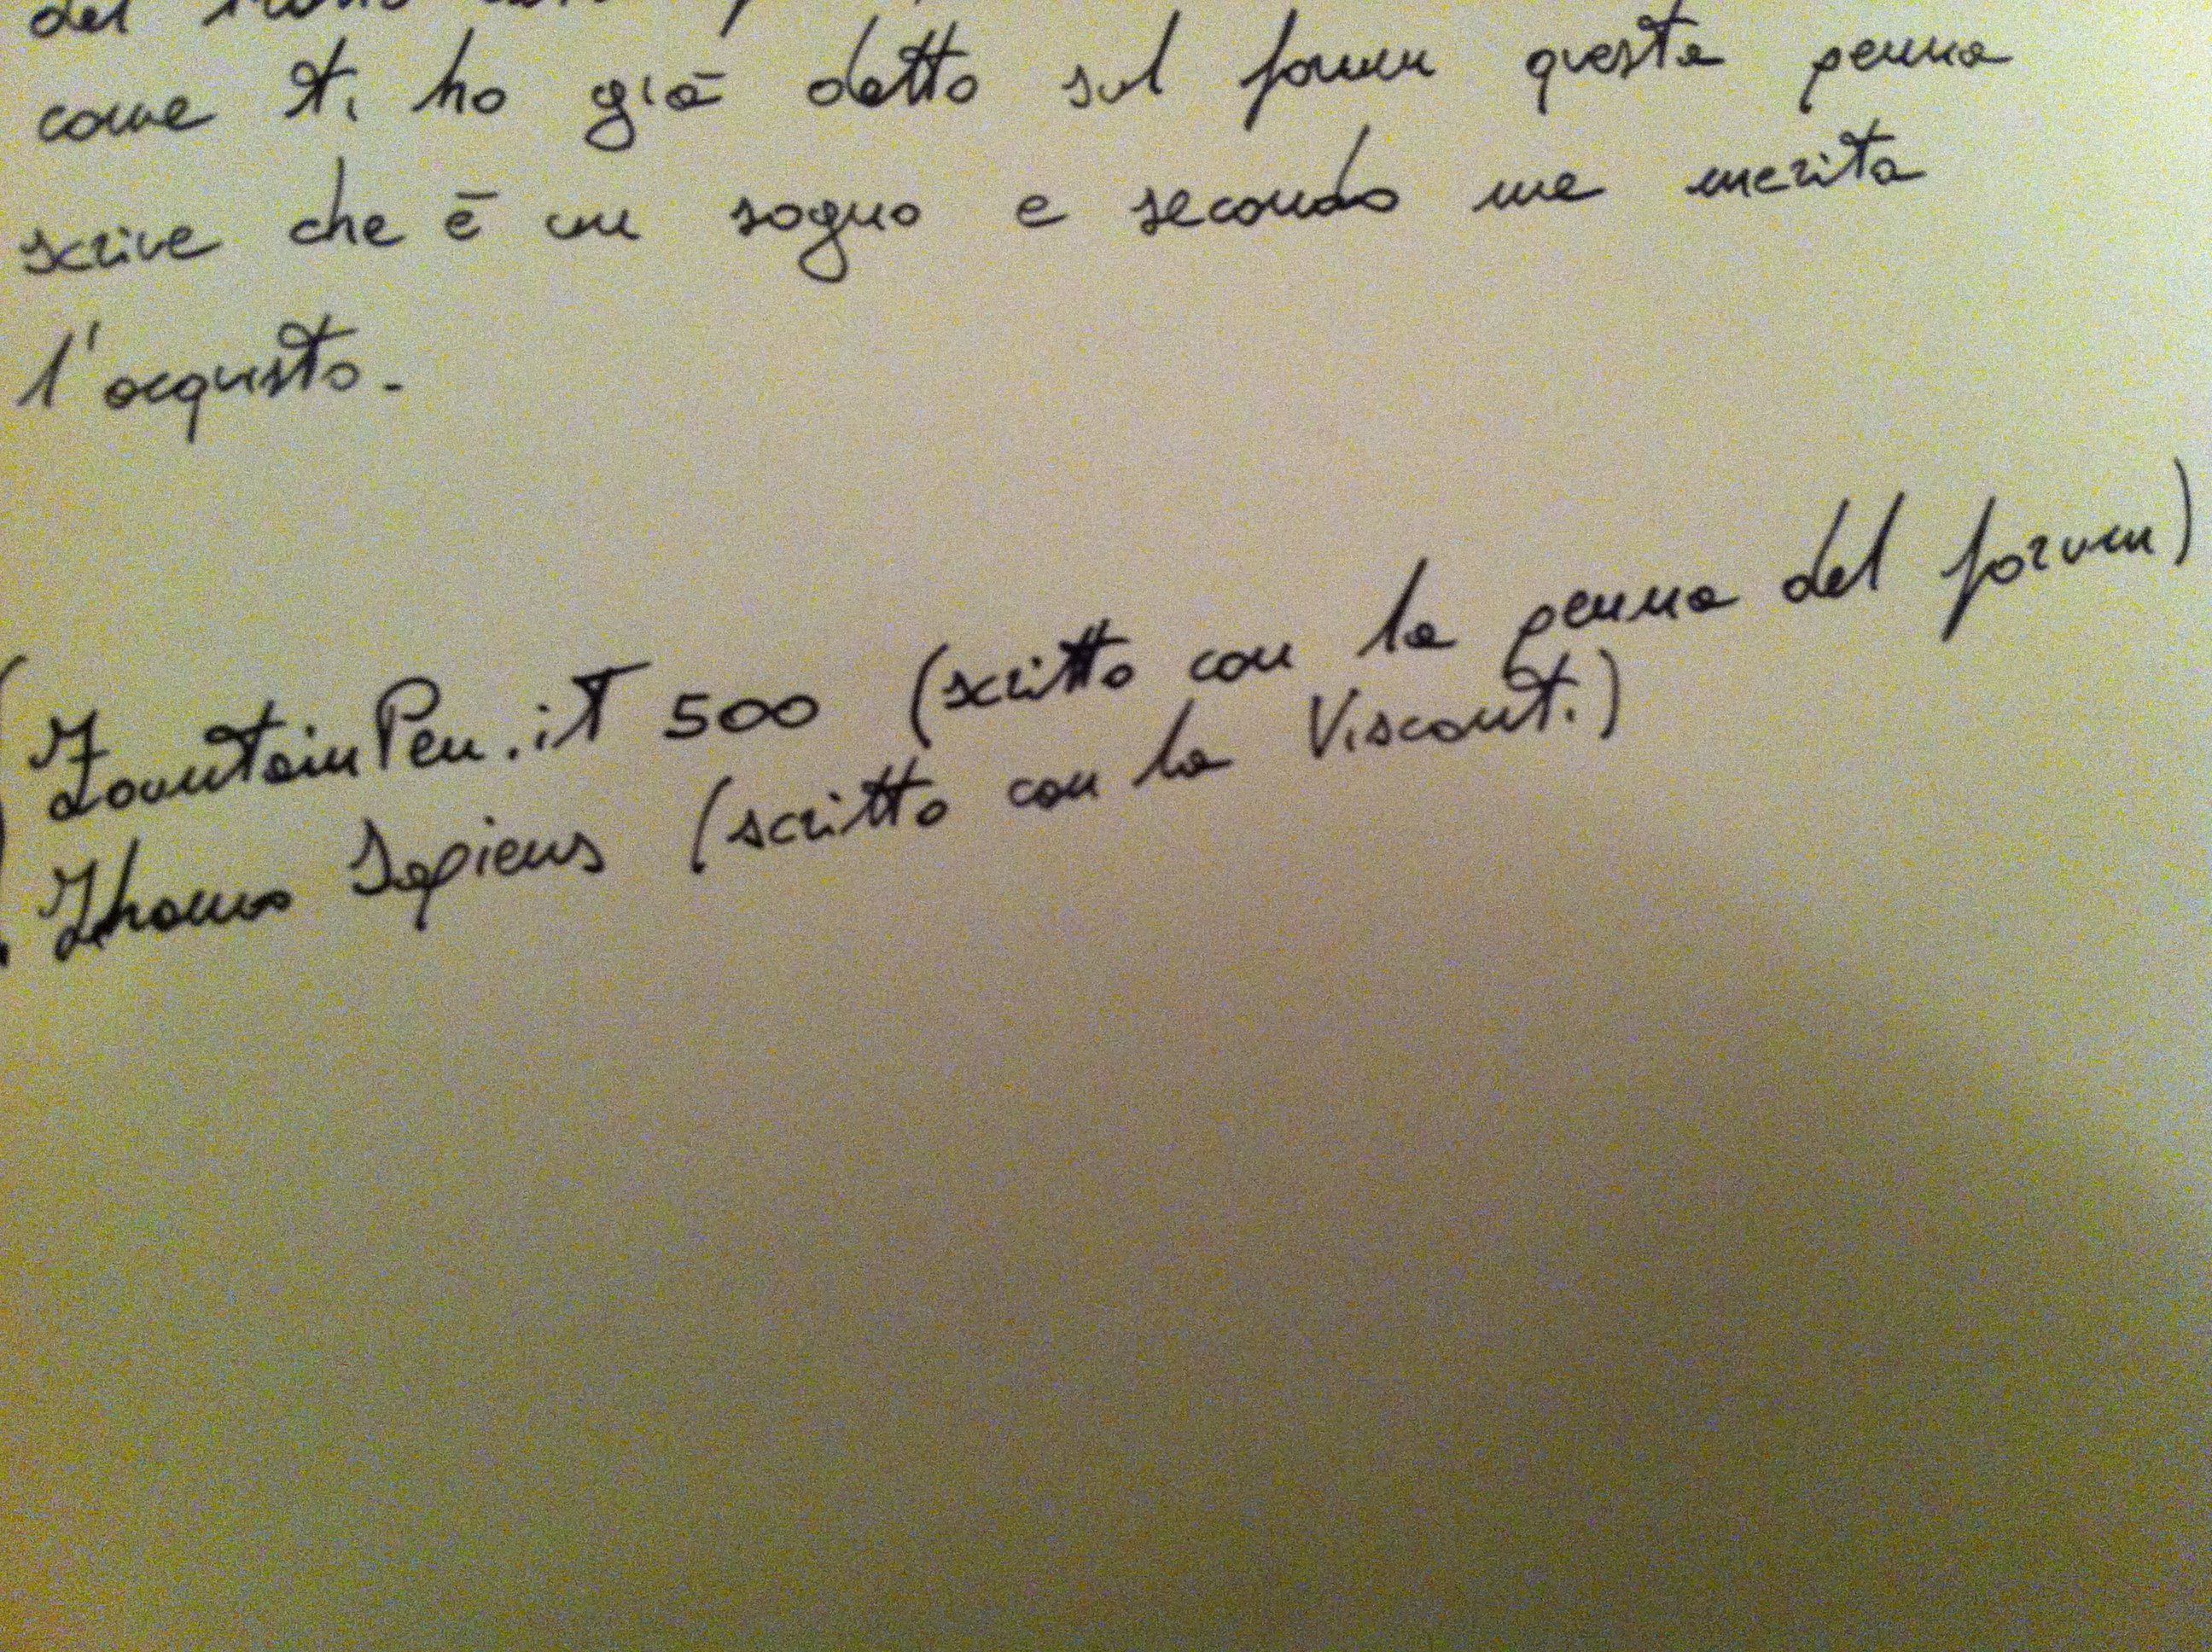 del
come ti ho già detto sul forum questa penna
scrive che è un sogno e secondo me merita
l'acquisto.
FountainPen.it 500 (scritto con la penna del forum)
Homo Sapiens (scritto con la Visconti)